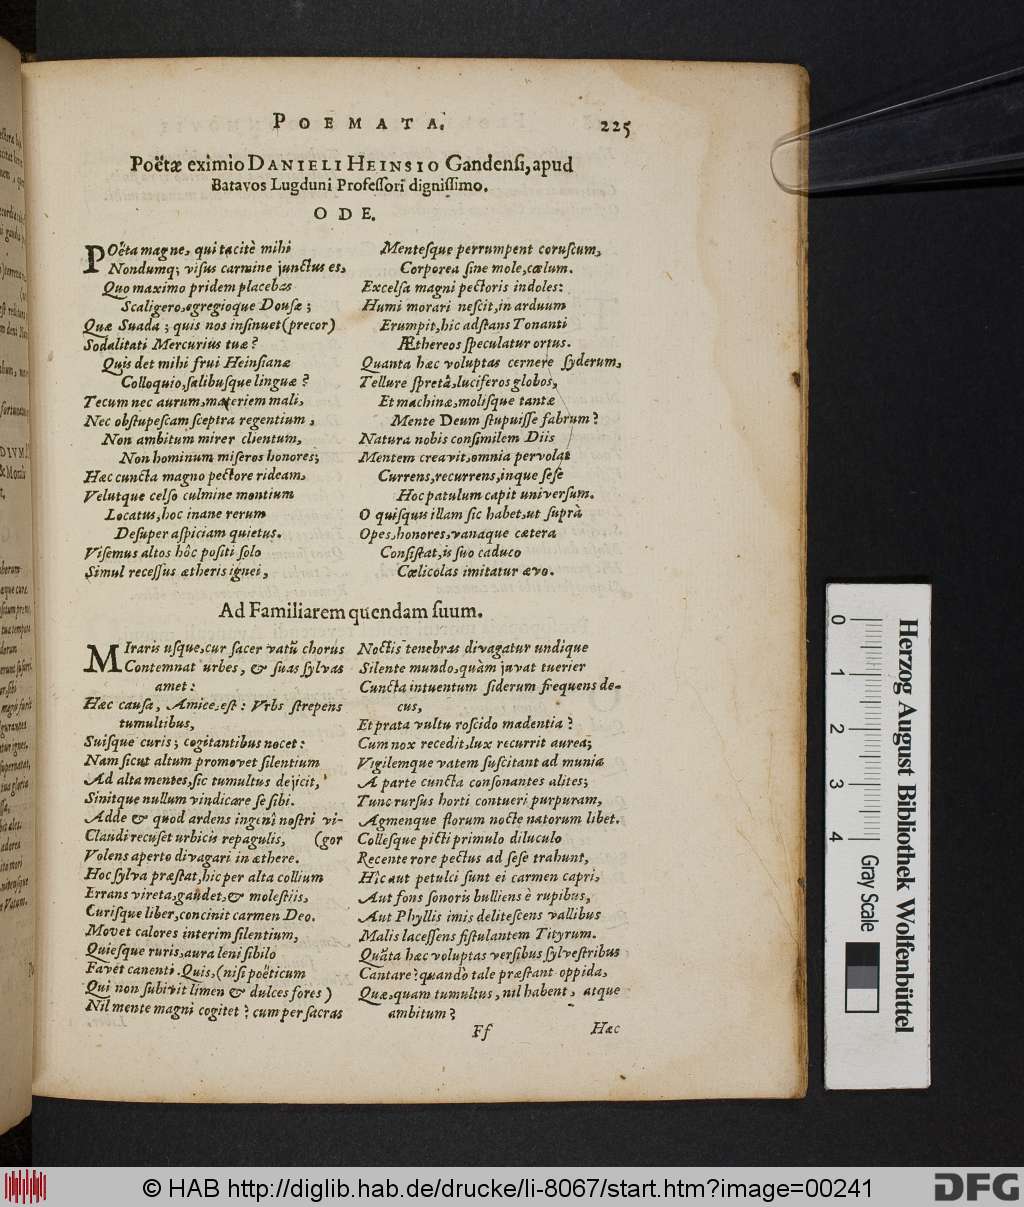 POEMATA.
225
Poëtæ eximio DANIELI HEINSIO Gandensi, apud
Batavos Lugduni Professori dignissimo.
ODE.
POëta magne, qui tacitè mihi
Nondumq; visus carmine junctus es,
Quo maximo pridem placebas
Scaligero, egregioque Dousæ;
Quæ Suada; quis nos insinuet (precor)
Sodalitati Mercurius tuæ?
Quis det mihi frui Heinsianæ
Colloquio, salibusque linguæ?
Tecum nec aurum, materiem mali,
Nec obstupescam sceptra regentium,
Non ambitum mirer clientum,
Non hominum miseros honores;
Hæc cuncta magno pectore rideam,
Velutque celso culmine montium
Locatus, hoc inane rerum
Desuper aspiciam quietus.
Visemus altos hôc positi solo
Simul recessus ætheris ignei,
Mentesque perrumpent coruscum,
Corporea sine mole, cœlum.
Excelsa magni pectoris indoles:
Humi morari nescit, in arduum
Erumpit, hic adstans Tonanti
Æthereos speculatur ortus.
Quanta hæc voluptas cernere syderum,
Tellure spretâ, luciferos globos,
Et machinæ, molisque tantæ
Mente Deum stupuisse fabrum?
Natura nobis consimilem Diis
Mentem creavit, omnia pervolat
Currens, recurrens, inque sese
Hoc patulum capit universum.
O quisquis illam sic habet, ut suprà
Opes, honores, vanaque cætera
Consistat, is suo caduco
Cœlicolas imitatur ævo.
Ad Familiarem quendam suum.
MIraris usque, cur sacer vatũ chorus
Contemnat urbes, & suas sylvas
amet:
Hæc causa, Amice, est: Vrbs strepens
tumultibus,
Suisque curis; cogitantibus nocet:
Nam sicut altum promovet silentium
Ad alta mentes, sic tumultus dejicit,
Sinitque nullum vindicare se sibi.
Adde & quod ardens ingenî nostri vi-
Claudi recuset urbicis repagulis, (gor
Volens aperto divagari in æthere.
Hoc sylva præstat, hic per alta collium
Errans vireta, gaudet, & molestiis,
Curisque liber, concinit carmen Deo.
Movet calores interim silentium,
Quiesque ruris, aura leni sibilo
Favet canenti. Quis, (nisi poëticum
Qui non subivit limen & dulces fores)
Nil mente magni cogitet? cum per sacras
Noctis tenebras divagatur undique
Silente mundo, quàm juvat tuerier
Cuncta intuentum siderum frequens de-
cus,
Et prata vultu roscido madentia?
Cum nox recedit, lux recurrit aurea;
Vigilemque vatem suscitant ad munia
A parte cuncta consonantes alites;
Tunc rursus horti contueri purpuram,
Agmenque florum nocte natorum libet.
Collesque picti primulo diluculo
Recente rore pectus ad sese trahunt,
Hîc aut petulci sunt ei carmen capri,
Aut fons sonoris bulliens è rupibus,
Aut Phyllis imis delitescens vallibus
Malis lacessens fistulantem Tityrum.
Quãta hæc voluptas versibus sylvestribus
Cantare? quando tale præstant oppida,
Quæ, quam tumultus, nil habent, atque
ambitum?
Ff
Hæc
Herzog August Bibliothek Wolfenbüttel
0 1 2 3 4
Gray Scale
© HAB http://diglib.hab.de/drucke/li-8067/start.htm?image=00241
DFG